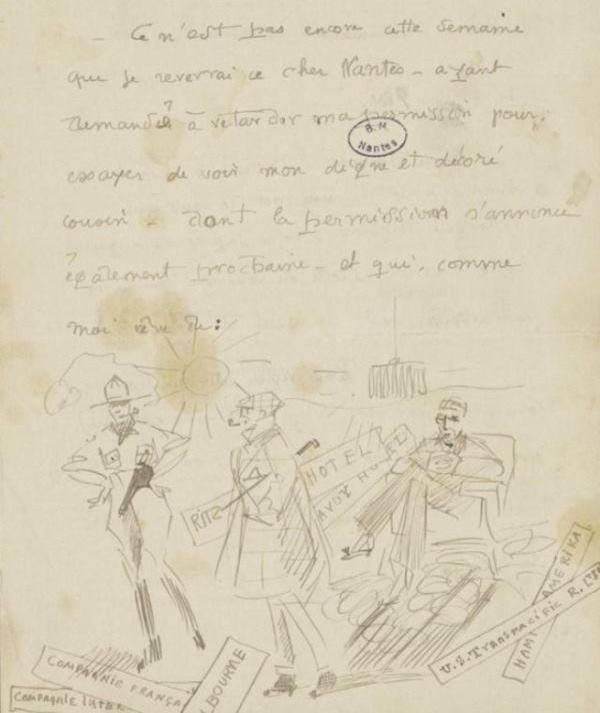 _ Ce n'est pas encore cette semaine
que je reverrai ce cher Nantes _ ayant
demandé à retarder ma permission pour
essayer de voir mon digne et décoré
cousin _ dont la permission s'annonce
également prochaine _ et qui, comme
moi rêve de:
B.M
Nantes
HOTEL
SAVOY HOTEL
RITZ
AMERIKA
U.S. Transpacific R.
HAM
COMPAGNIE FRANÇA
LBOURNE
COMPAGNIE INTER